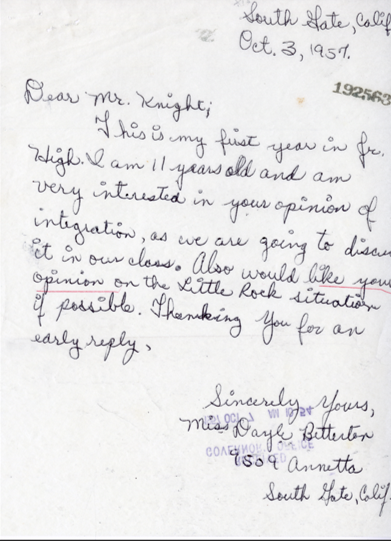 South Gate, Calif
Oct. 3, 1957.
192563
Dear Mr. Knight;
This is my first year in Jr.
High. I am 11 years old and am
very interested in your opinion of
integration, as we are going to discus
it in our class. Also would like your
opinion on the Little Rock situation
if possible. Thanking You for an
early reply.
Sincerely Yours,
Miss Dayle Bitterton
OCT 7 AM 10 54
GOVERNOR OFFICE
9509 Annetta
South Gate, Calif.